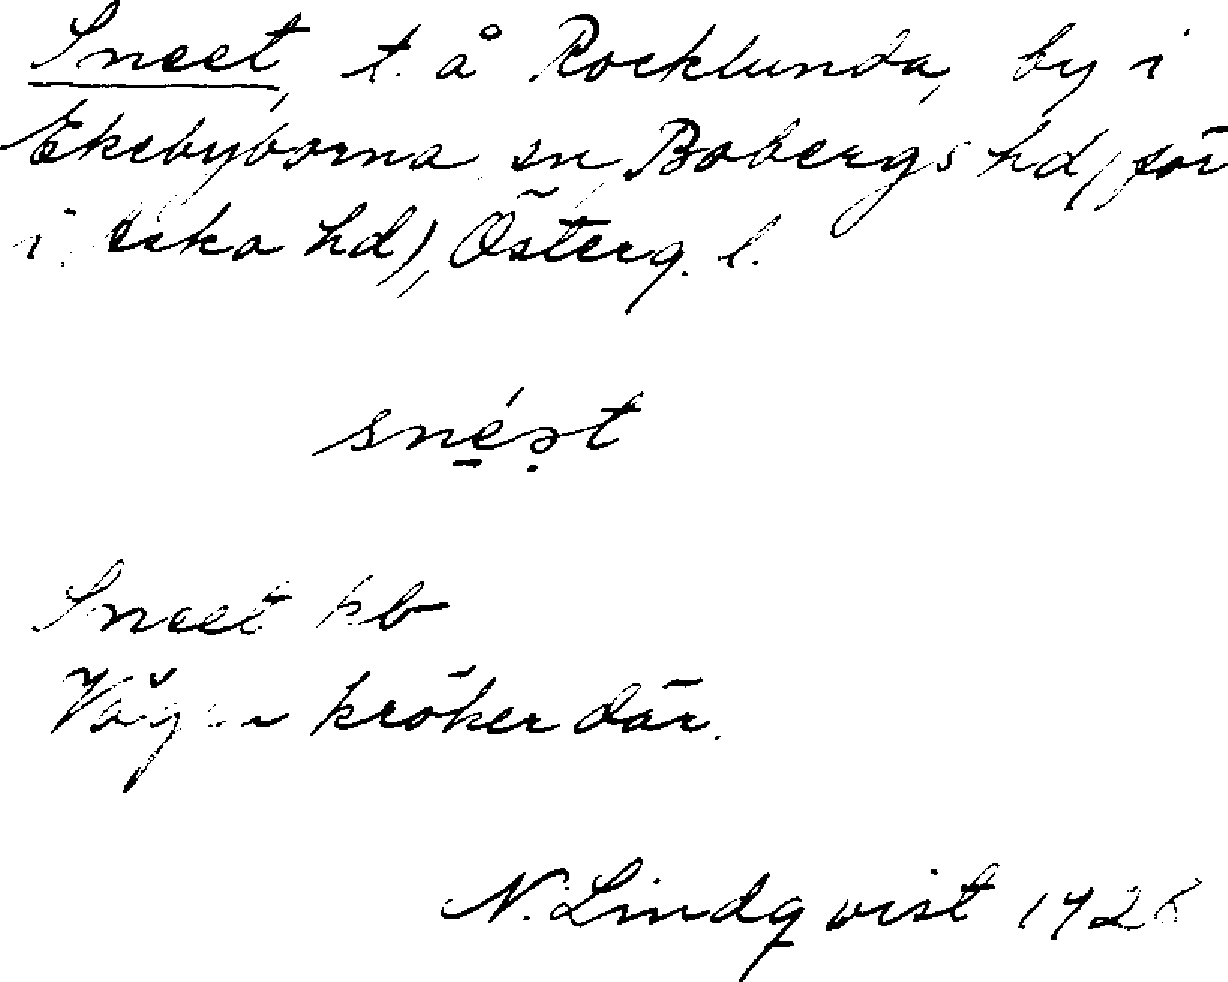 Sneet, t. å Rocklunda, by i
Ekebyborna sn, Bobergs hd, (för
i. Aska hd), Österg. l.
snéət
Sneet kb
Vägen kröker där.
N. Lindqvist 1928